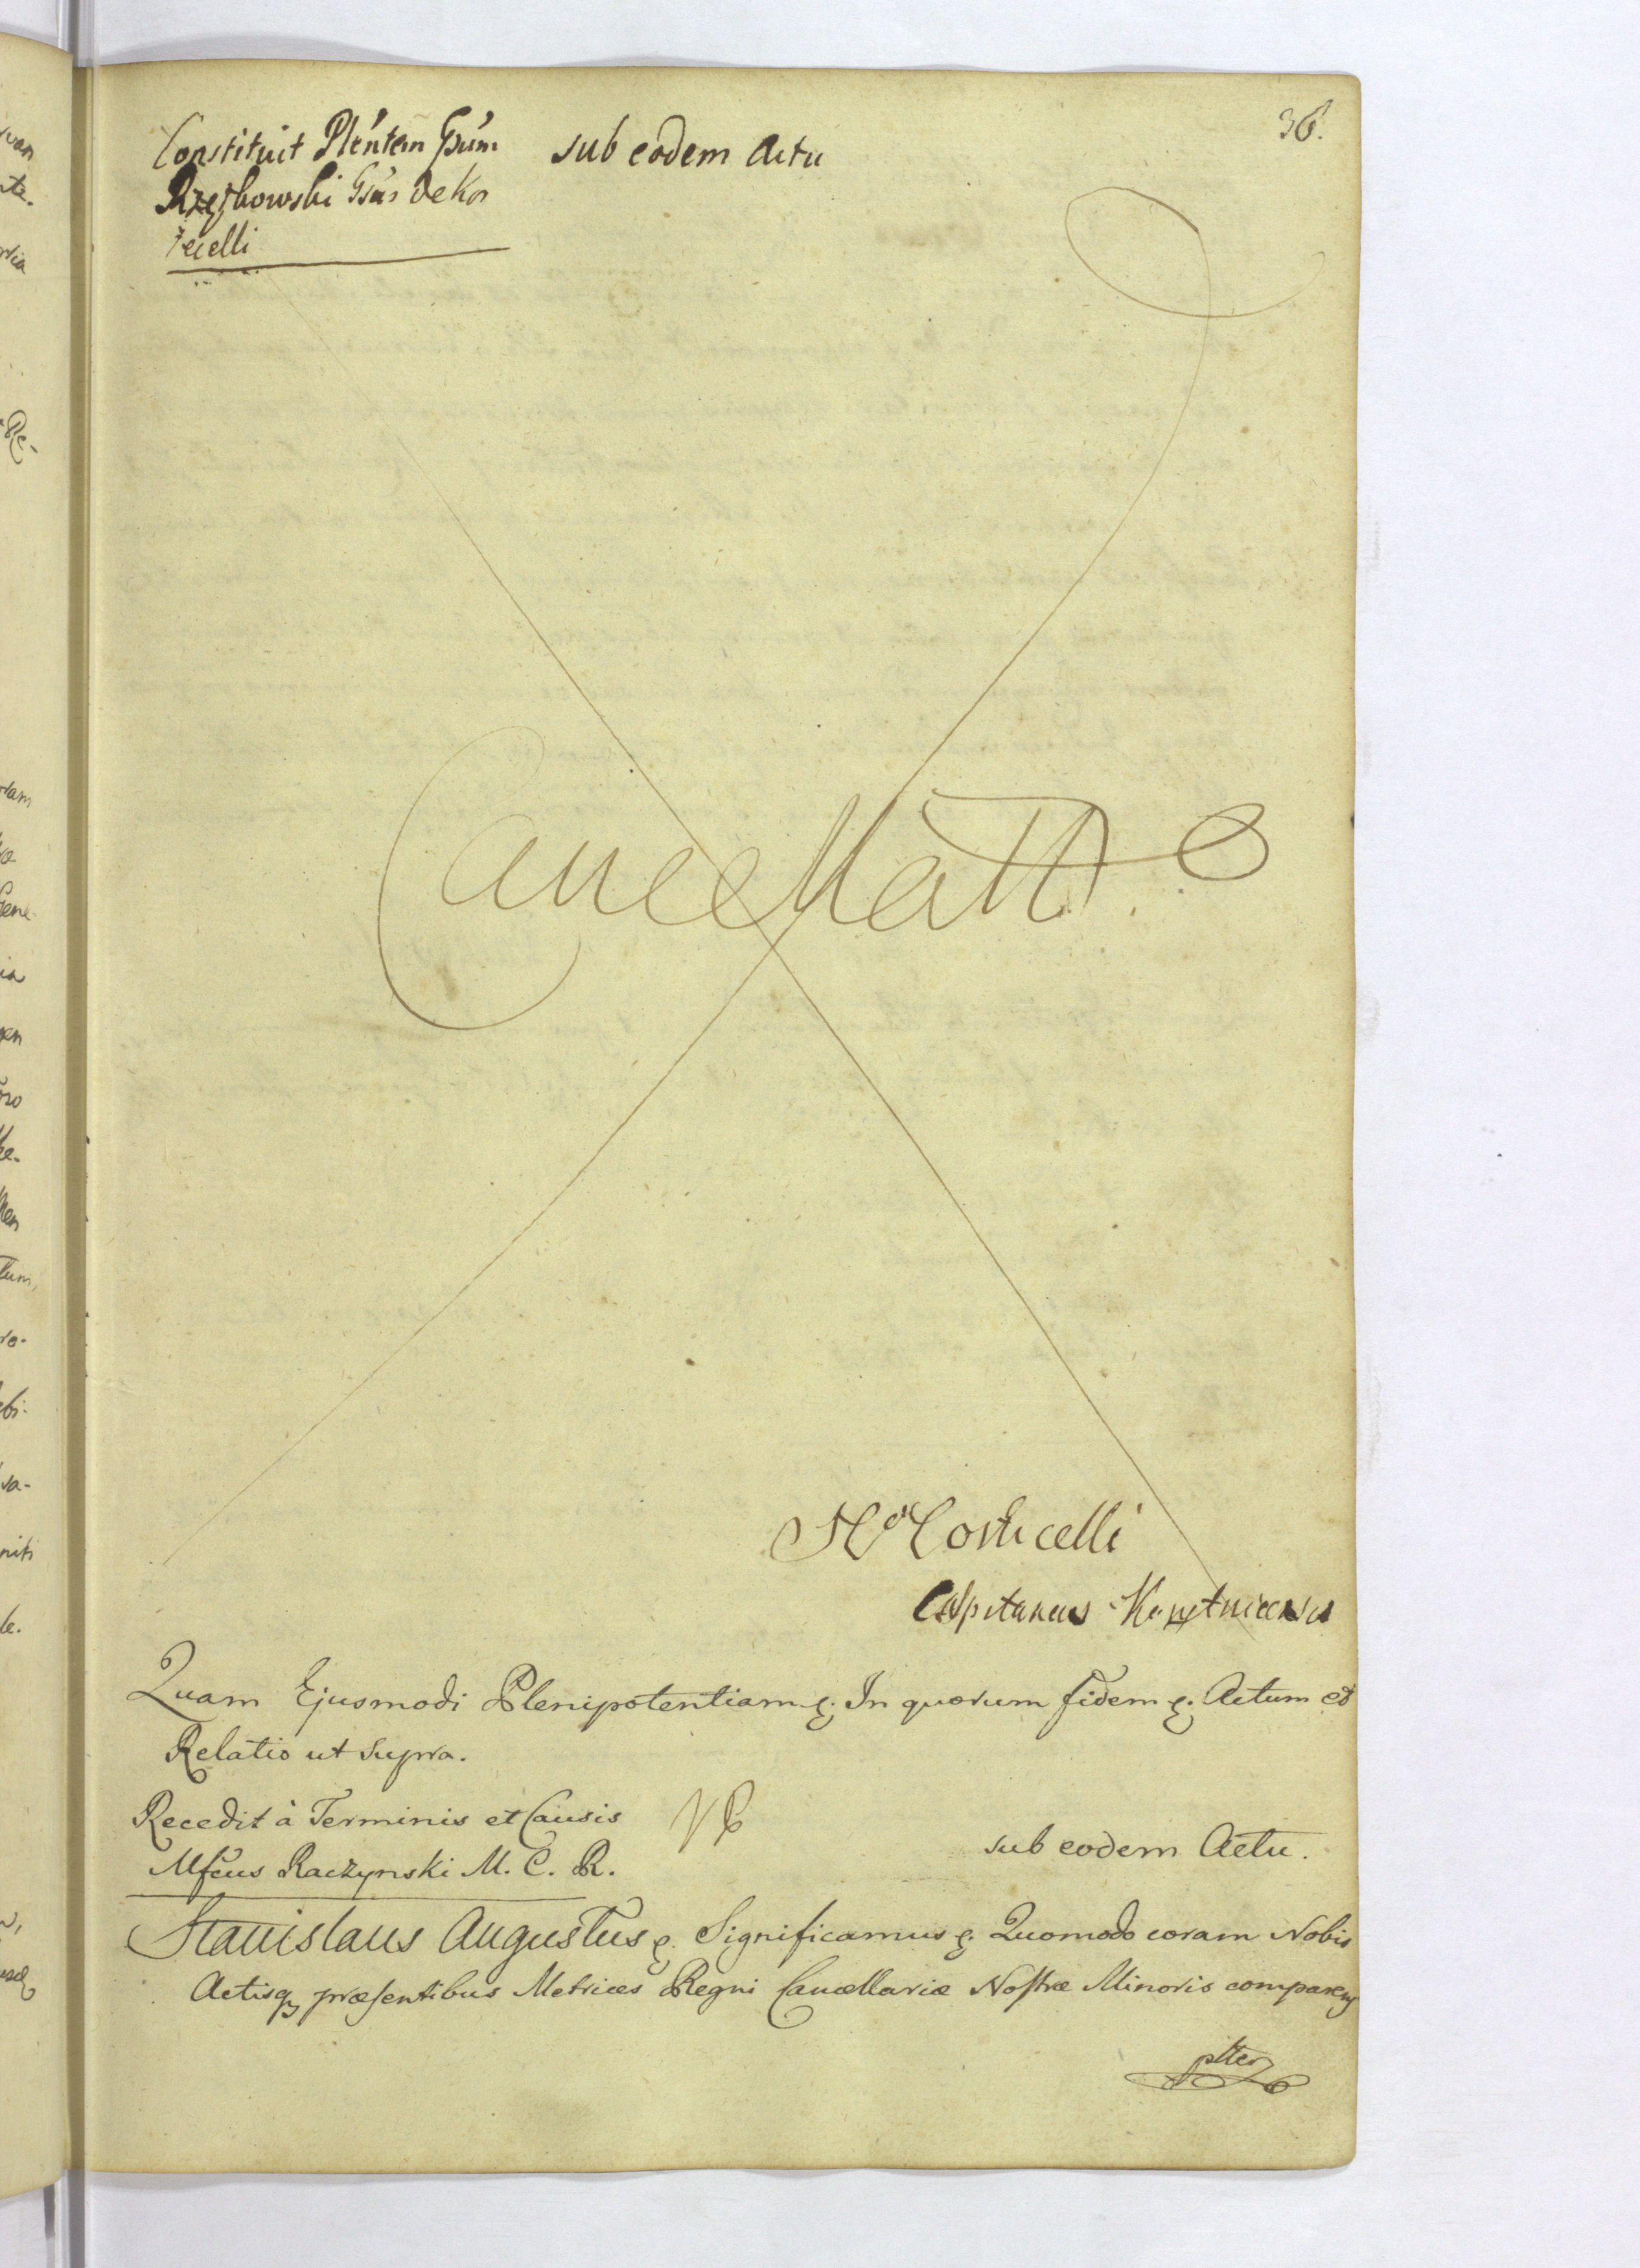 36.
Constituit Plentem Gsum sub eodem Actu
Gsus de Kor
ticelli
Cancellatt.
Corticelli
Capitaneus
Quam Ejusmodi Plenipotentiam &. In quorum fidem &. Actum et
Relatio ut supra.
Recedit à Terminis et Causis
Mfcus Raczynski M. C. R.
sub eodem Actu.
Stanislaus Augustus &. Significamus &. Quomodo coram Nobis
Actisq præsentibus Metrices Regni Cancellariæ Nostræ Minoris comparens